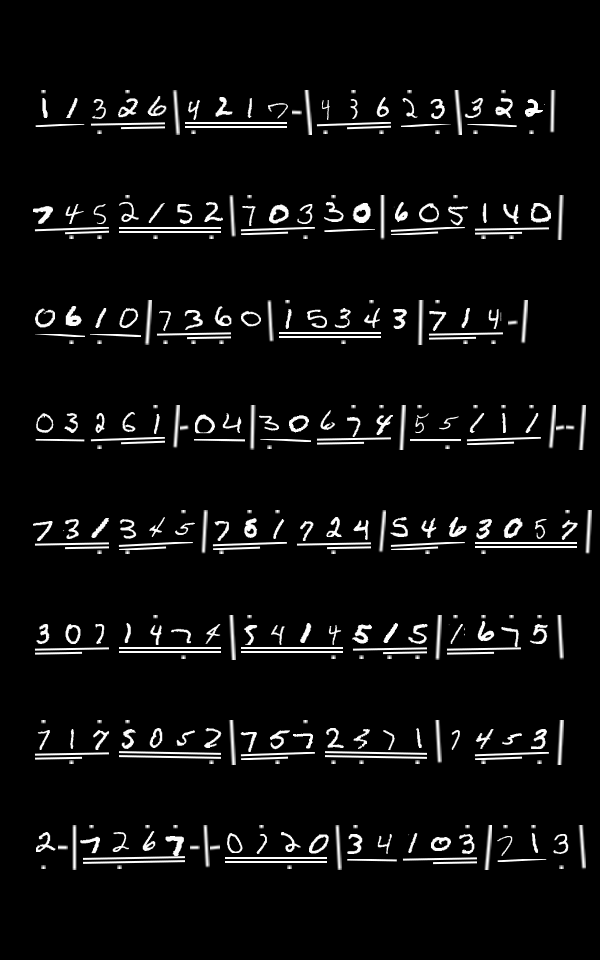 11326|4217-|43623|322
7452152|70330|605140|
0610|7360|15343|714-|
03261|-04|30674|55111|--|
731345|761724|5463057|
3071474|5414515|1675|
7175052|7572371|7453|
2-|7267-|-0720|34103|713|